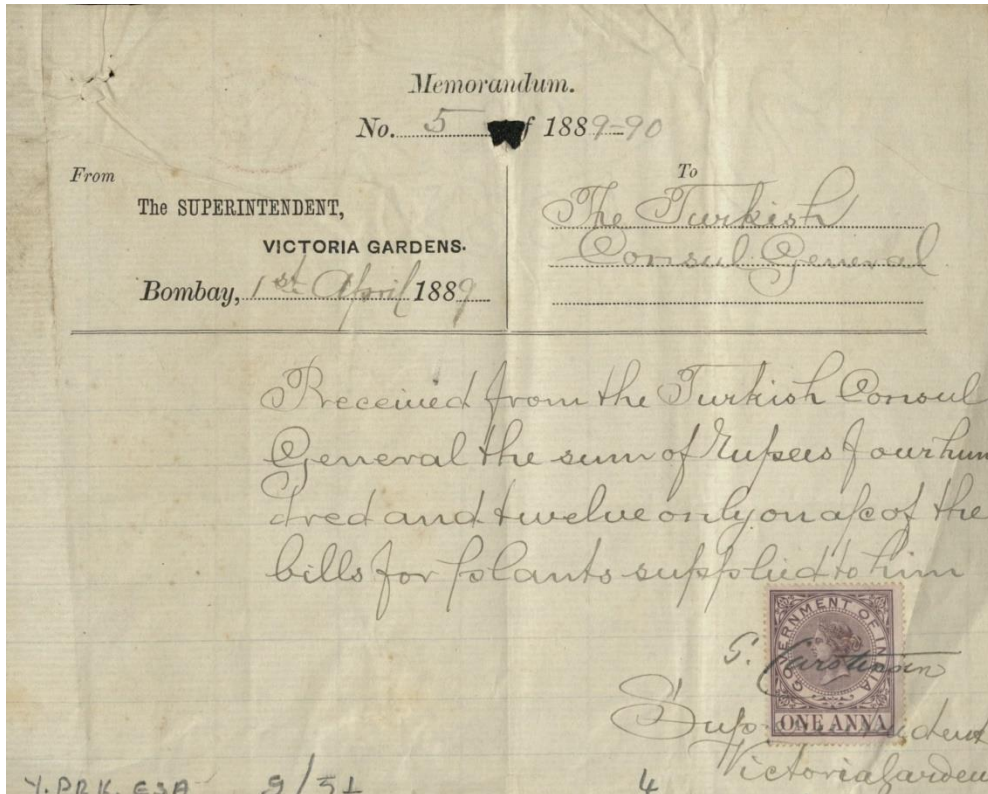 Memorandum.
No. 5 of 1889-90
From
The SUPERINTENDENT,
VICTORIA GARDENS.
Bombay, 1st April 1889
To
The Turkish
Consul General
Received from the Turkish Consul
General the sum of Rupees four hun
dred and twelve only on a/c of the
bills for plants supplied to him
GOVERNMENT OF INDIA
ONE ANNA
Victoria Garden
Y.PRK.ESA 9/51 4